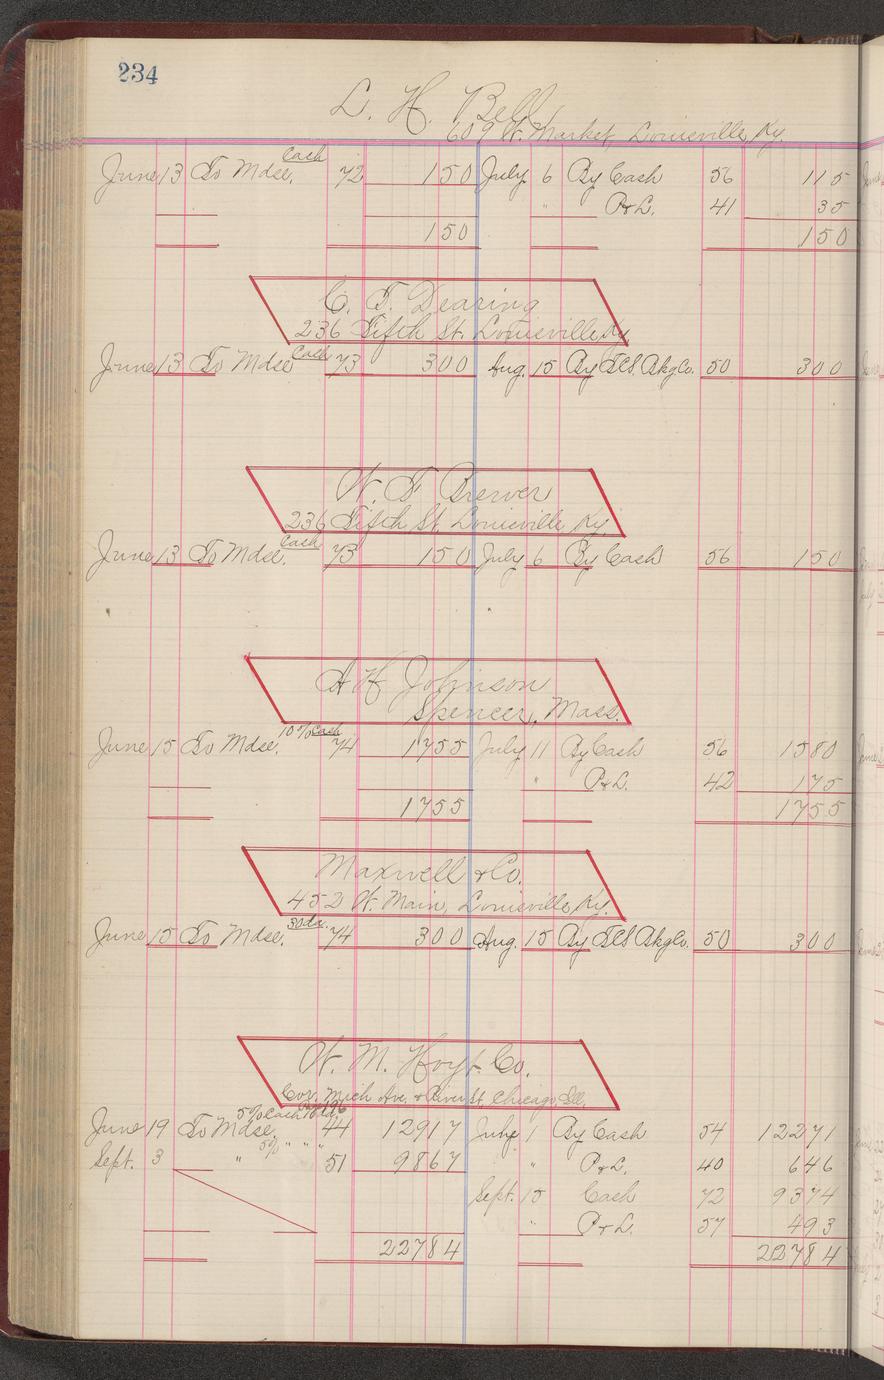 234
L. H. Bell
609 W. Market, Louisville, Ky.
June 13 To Mdse. Cash 72 150 July 6 By Cash 56 115
" P&L. 41 35
150 150
C. T. Dearing
236 Fifth St. Louisville, Ky
June 13 To Mdse Cash 73 300 Aug. 15 By Bkg Co. 50 300
W. T Brewer
236 Fifth St, Louisville, Ky.
June 13 To Mdse. Cash 73 150 July 6 By Cash 56 150
A H Johnson
Spencer, Mass.
June 15 To Mdse. 10% Cash 74 1755 July 11 By Cash 56 1580
" P&L. 42 175
1755 1755
Maxwell & Co.
452 W. Main, Louisville, Ky.
June 15 To Mdse. 30 da. 74 300 Aug. 15 By Bkg Co. 50 300
W. M. Hoyt Co.
Cor. Mich Ave. & River St, Chicago, Ill.
June 19 To Mdse. 5% Cash 44 12917 July 1 By Cash 54 12271
Sept. 3 " 5% " " " 51 9867 " P&L. 40 646
Sept. 15 Cash 72 9374
" P&L. 57 493
22784 22784